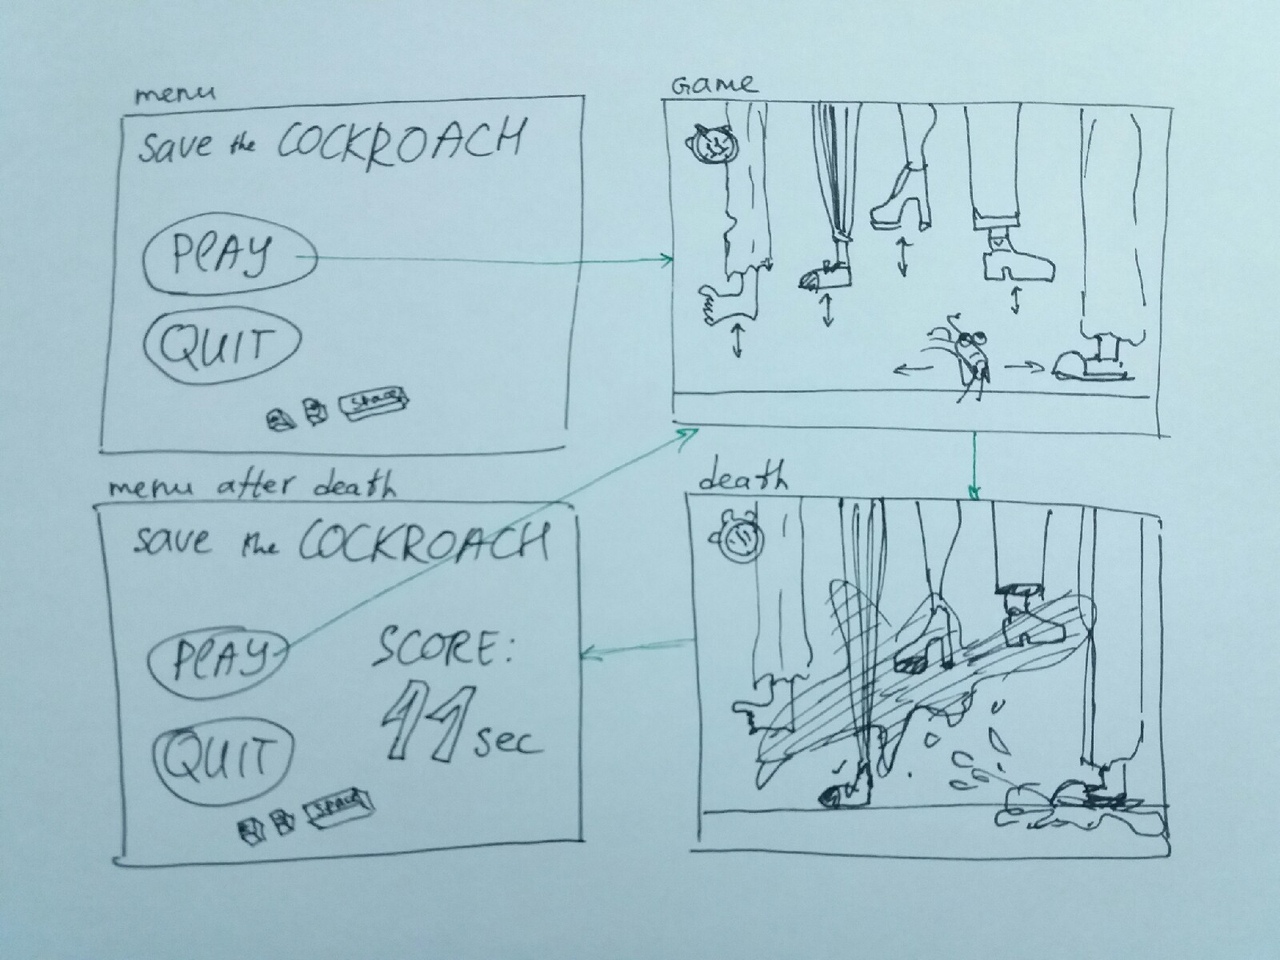 menu
save the COCKROACH
PlAY
QUIT
space
Game
menu after death
save the COCKROACH
PlAY
QUIT
SCORE:
11 sec
space
death